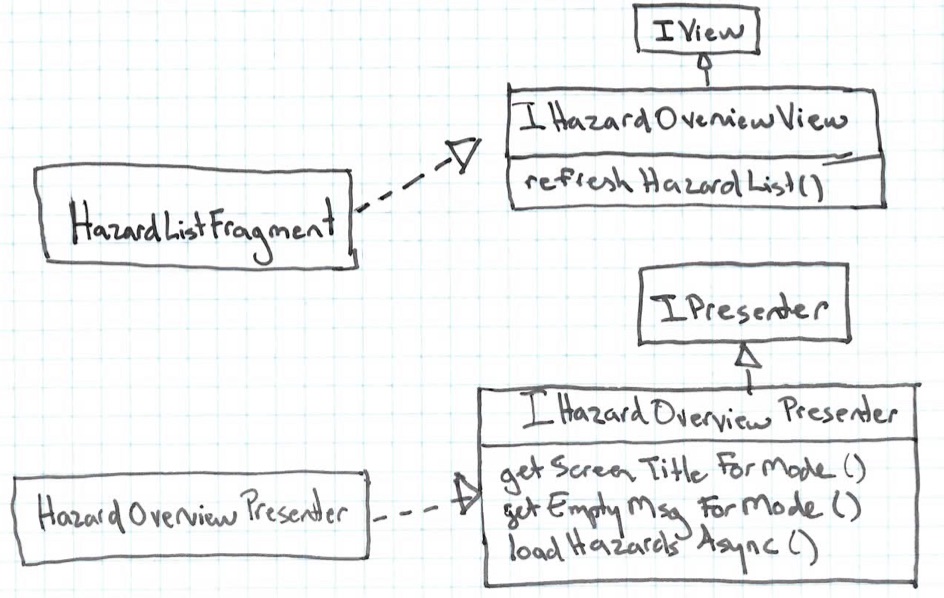 IView
IHazardOverviewView
refreshHazardList()
HazardListFragment
IPresenter
IHazardOverview Presenter
getScreen Title ForMode()
getEmptyMsg ForMode()
loadHazards Async()
HazardOverview Presenter